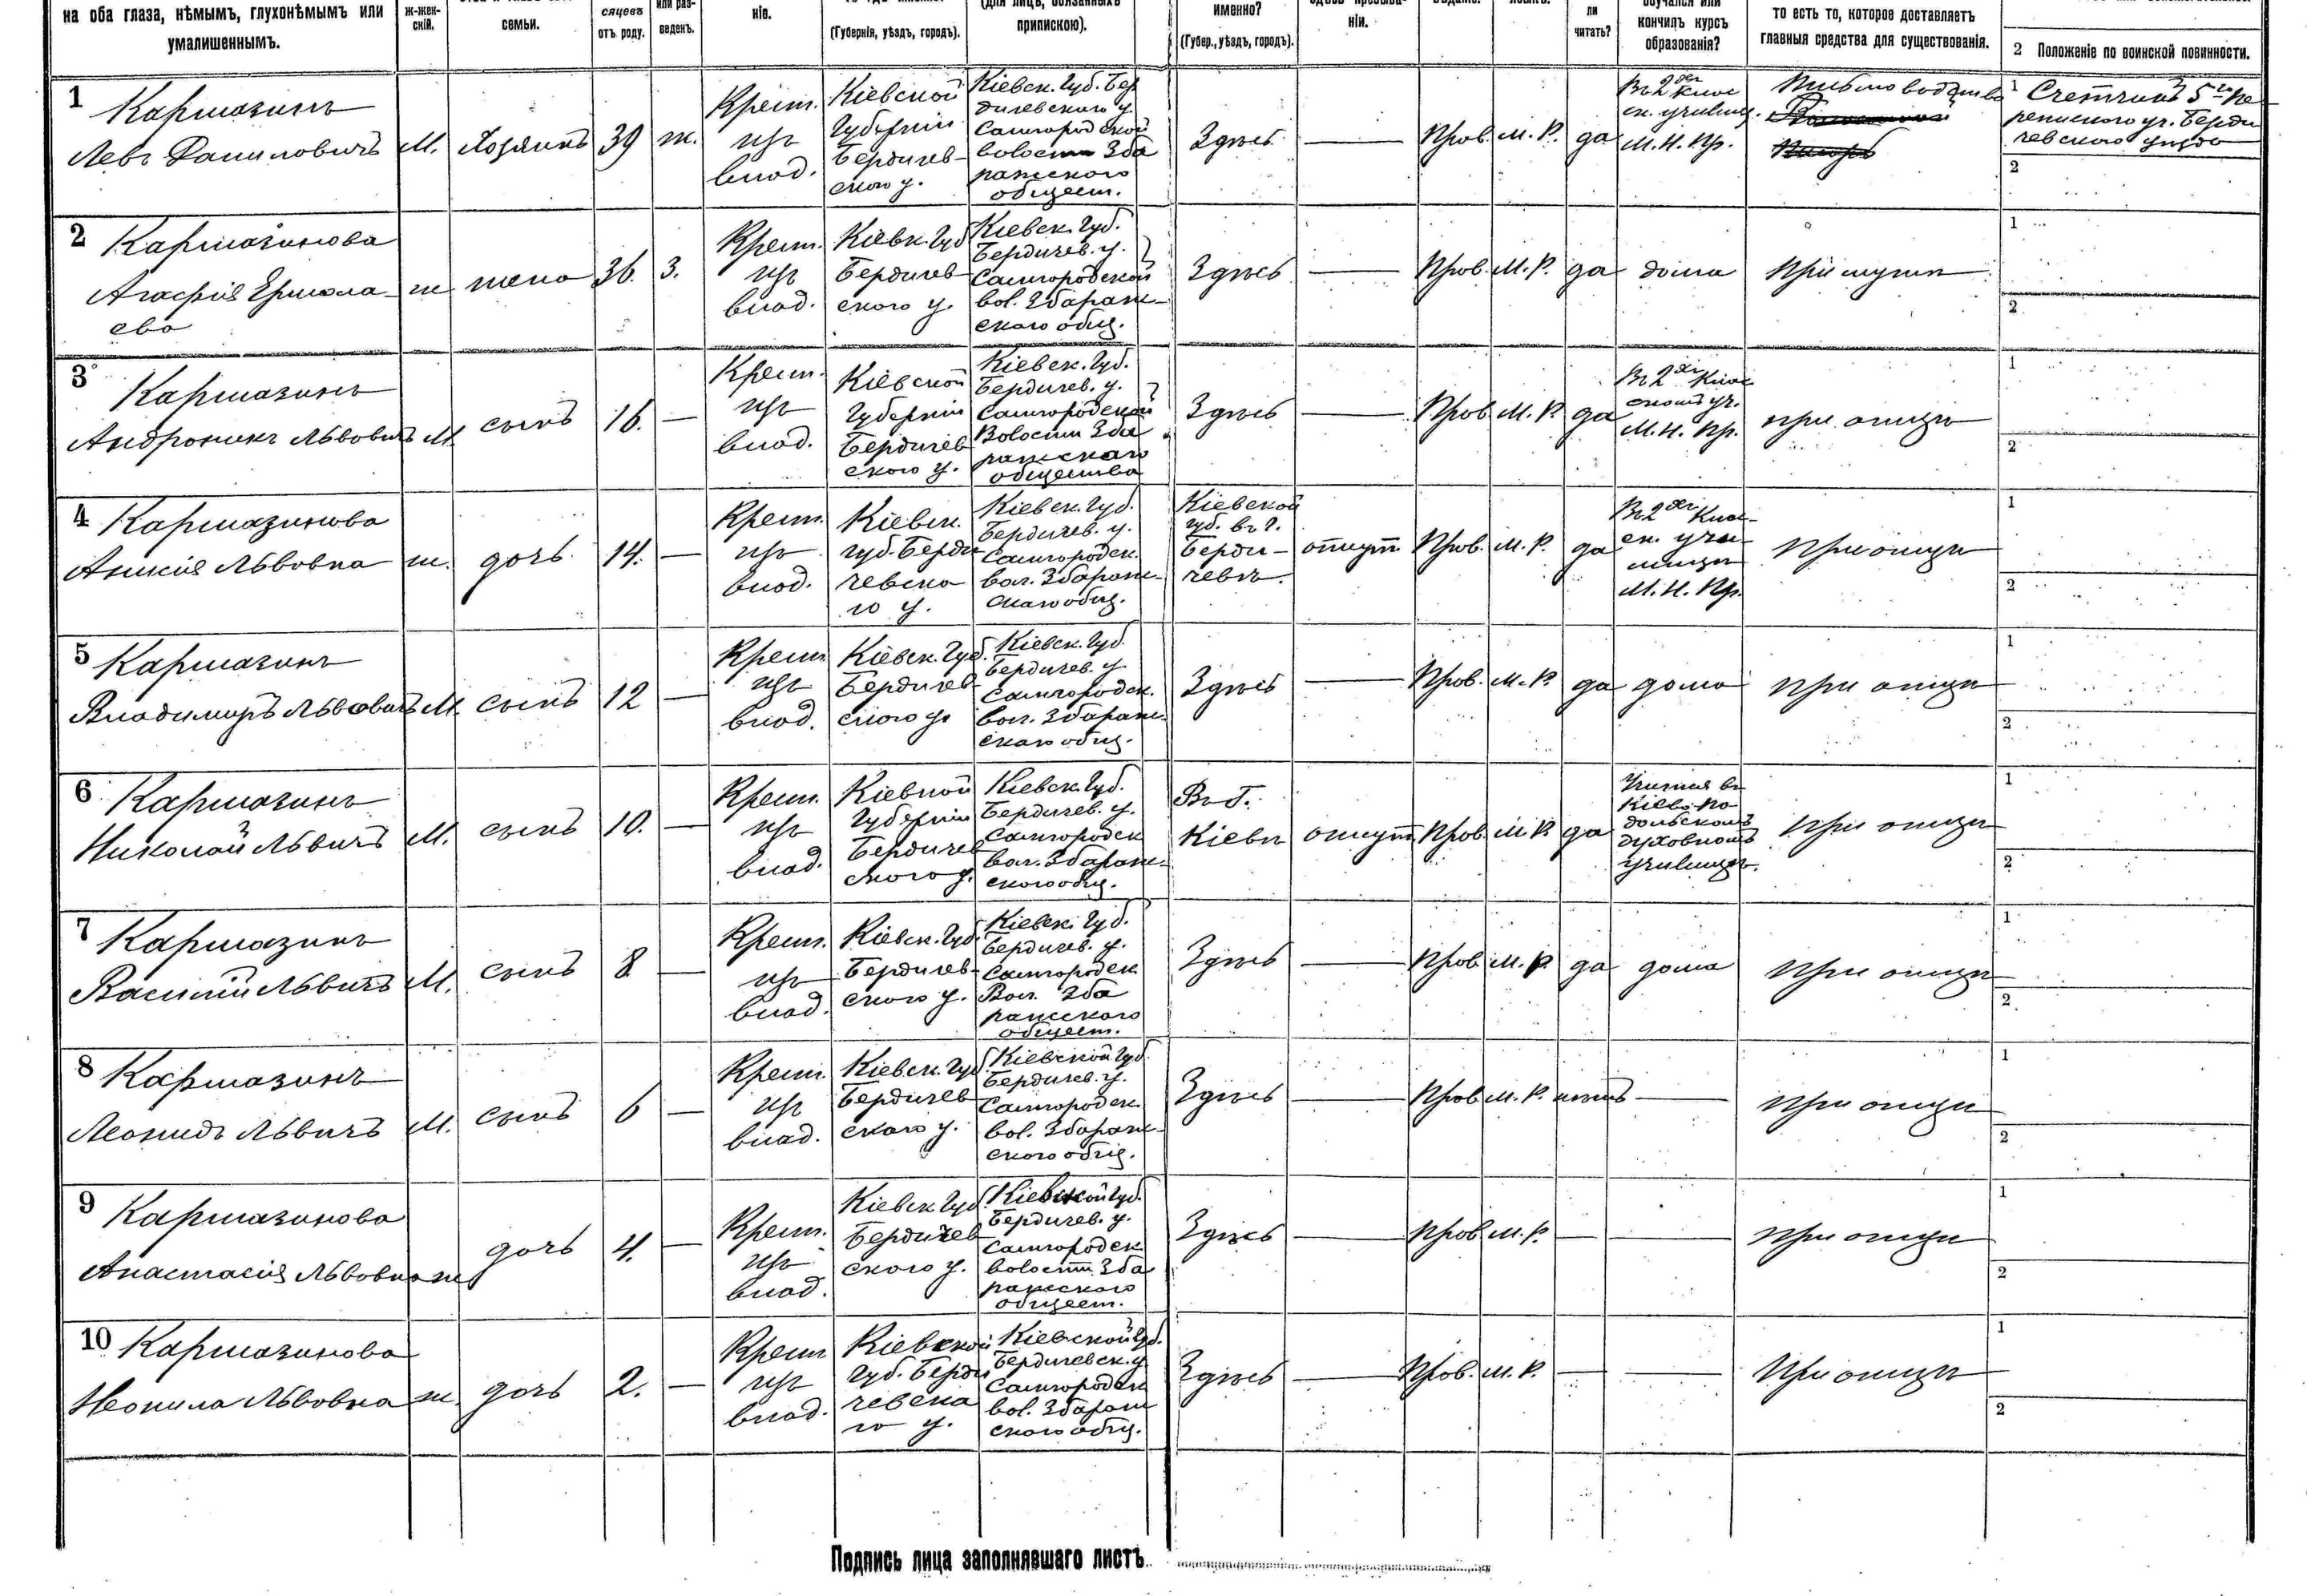 на оба глаза, нѣмымъ, глухонѣмымъ или
умалишеннымъ.
ж-жен-
скій.
семьи.
сяцевъ
отъ роду.
или раз-
веденъ.
ніе.
(Губернія, уѣздъ, городъ).
(для лицъ, обязанныхъ
припискою).
именно?
(Губер., уѣздъ, городъ).
ніи.
ли
читать?
обучался или
кончилъ курсъ
образованія?
то есть то, которое доставляетъ
главныя средства для существованія.
2 Положеніе по воинской повинности.
1 Кармазинъ
Левъ Даниловичъ
М.
Хозяинъ
39
ж.
Крест.
изъ
влад.
Кіевской
Губерніи
Бердичев-
ского у.
Кіевск. Губ. Бер
дичевского у.
Самгородской
волости Зба
ражского
общест.
Здѣсь
Прав.
М. Р.
да
Въ 2 кл
М. Н. Пр.
Письмоводство
1 Счетчикъ 5го Пе
реписного уч. Берди
чевского уѣзда
2
2 Кармазинова
Агафія Ермола-
ева
ж
жена
36.
З.
Крест.
изъ
влад.
Кіевк. Губ
Бердичев-
ского у.
Кіевск. Губ.
Бердичев. у.
Самгородской
вол. Збараж-
ского общ.
Здѣсь
Прав.
М. Р.
да
дома
При мужѣ
1
2
3 Кармазинъ
Андроникъ Львовичъ
М.
сынъ
16.
Крест.
изъ
влад.
Кіевской
Губерніи
Бердичев
ского у.
Кіевск. Губ.
Бердичев. у.
Самгородской
Волости Зба
ражскаго
общества
Здѣсь
Прав.
М. Р.
да
М. Н. Пр.
при отцѣ
1
2
4 Кармазинова
Анисія Львовна
ж.
дочь
14.
Крест.
изъ
влад.
Кіевск.
губ. Берди
чевска
го у.
Кіевск. Губ.
Бердичев. у.
Самгородск.
вол. Збараж-
скаго общ.
Кіевской
губ. въ г.
Берди-
чевѣ.
отсут
Прав.
М. Р.
да
М. Н. Пр.
При отцѣ
1
2
5 Кармазинъ
Владимиръ Львовичъ
М.
сынъ
12
Крест
изъ
влад.
Кіевск. Губ.
Бердичев
ского у.
Кіевск. Губ.
Бердичев. у
Самгородск.
вол. Збараж-
скаго общ.
Здѣсь
Прав.
М. Р.
да
дома
при отцѣ
1
2
6 Кармазинъ
Николай Львичъ
М.
сынъ
10.
Крест.
изъ
влад.
Губерніи
Бердичев
ского у.
Кіевск. Губ.
Бердичев. у.
Самгородск
вол. Збараж-
ского общ.
Въ Г.
Кіевѣ
отсут
Прав.
М. Р
да
Учится въ
Кіево-По-
дольскомъ
духовномъ
училищѣ.
при отцѣ
1
2
7 Кармазинъ
Василій Львичъ
М.
сынъ
8
Крест.
изъ
влад.
Кіевск. Губ.
Бердичев-
ского у.
Кіевск. Губ.
Бердичев. у.
Самгородск
Вол. Зба
ражского
общест.
Здѣсь
Прав
М. Р.
да
дома
при отцѣ
1
2
8 Кармазинъ
Леонидъ Львичъ
М.
сынъ
6
Крест.
изъ
влад.
Кіевск. Губ
Бердичев
ского у.
Кіевской Губ.
Бердичев. у.
Самгородск.
вол. Збараж-
ского общ.
Здѣсь
Прав
М. Р.
нѣтъ
при отцѣ
1
2
9 Кармазинова
Анастасія Львовна
ж
дочь
4.
Крест.
изъ
влад.
Кіевск Губ.
Бердичев
ского у.
Кіевской Губ.
Бердичев. у.
Самгородск
волости Зба
ражского
общест.
Здѣсь
Прав
М. Р.
при отцѣ
1
2
10 Кармазинова
Неонила Львовна
ж.
дочь
2.
Крест
изъ
влад.
Кіевской
Губ. Берди
чевска
го у.
Кіевской Губ.
Бердичевск. у
Самгородск
вол. Збараж
ского общ.
Здѣсь
Прав.
М. Р.
При отцѣ
1
2
Подпись лица заполнявшаго листъ